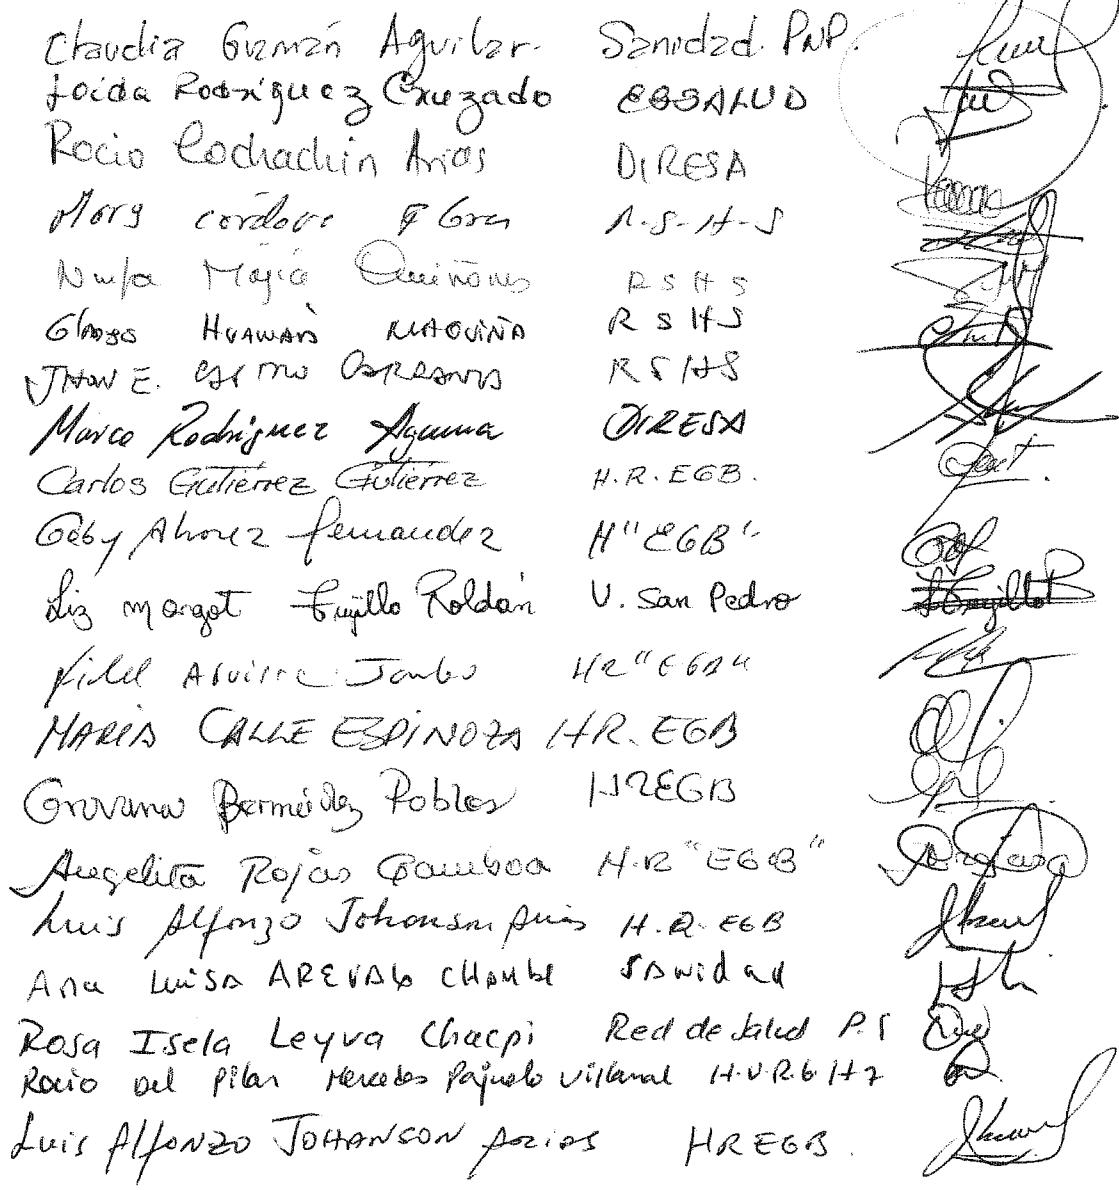 Claudia Guzmán Aguilar. Sanidad. PNP.
Loida Rodriguez Cruzado ESSALUD
Rocio Cochachin Arias DIRESA
cordova R-S-H-S
Mejia Quiñones RSHS
HUAMAN MAGUIÑA RSHS
JHON E. CASTRO RSHS
Marco Rodriguez DIRESA
Carlos Gutiérrez Gutiérrez H.R.EGB.
Gaby Alvarez fernandez H"EGB"
Liz margot Trujillo Roldán U. San Pedro
Fidel Aguirre HR"EGB"
MARIA CALLE ESPINOZA HR. EGB
Giovana Bermúdez Robles HREGB
Angelita Rojas Gamboa H.R "EGB"
Luis Alfonzo Johanson Arias H.R. EGB
Ana LuiSA AREVALO CHAUBE SANidad
Rosa Isela Leyva Chacpi Red de Salud P.S
Rocio del Pilar Mercedes Pajuelo Villarreal
Luis Alfonzo JOHANSON Arias HREGB.